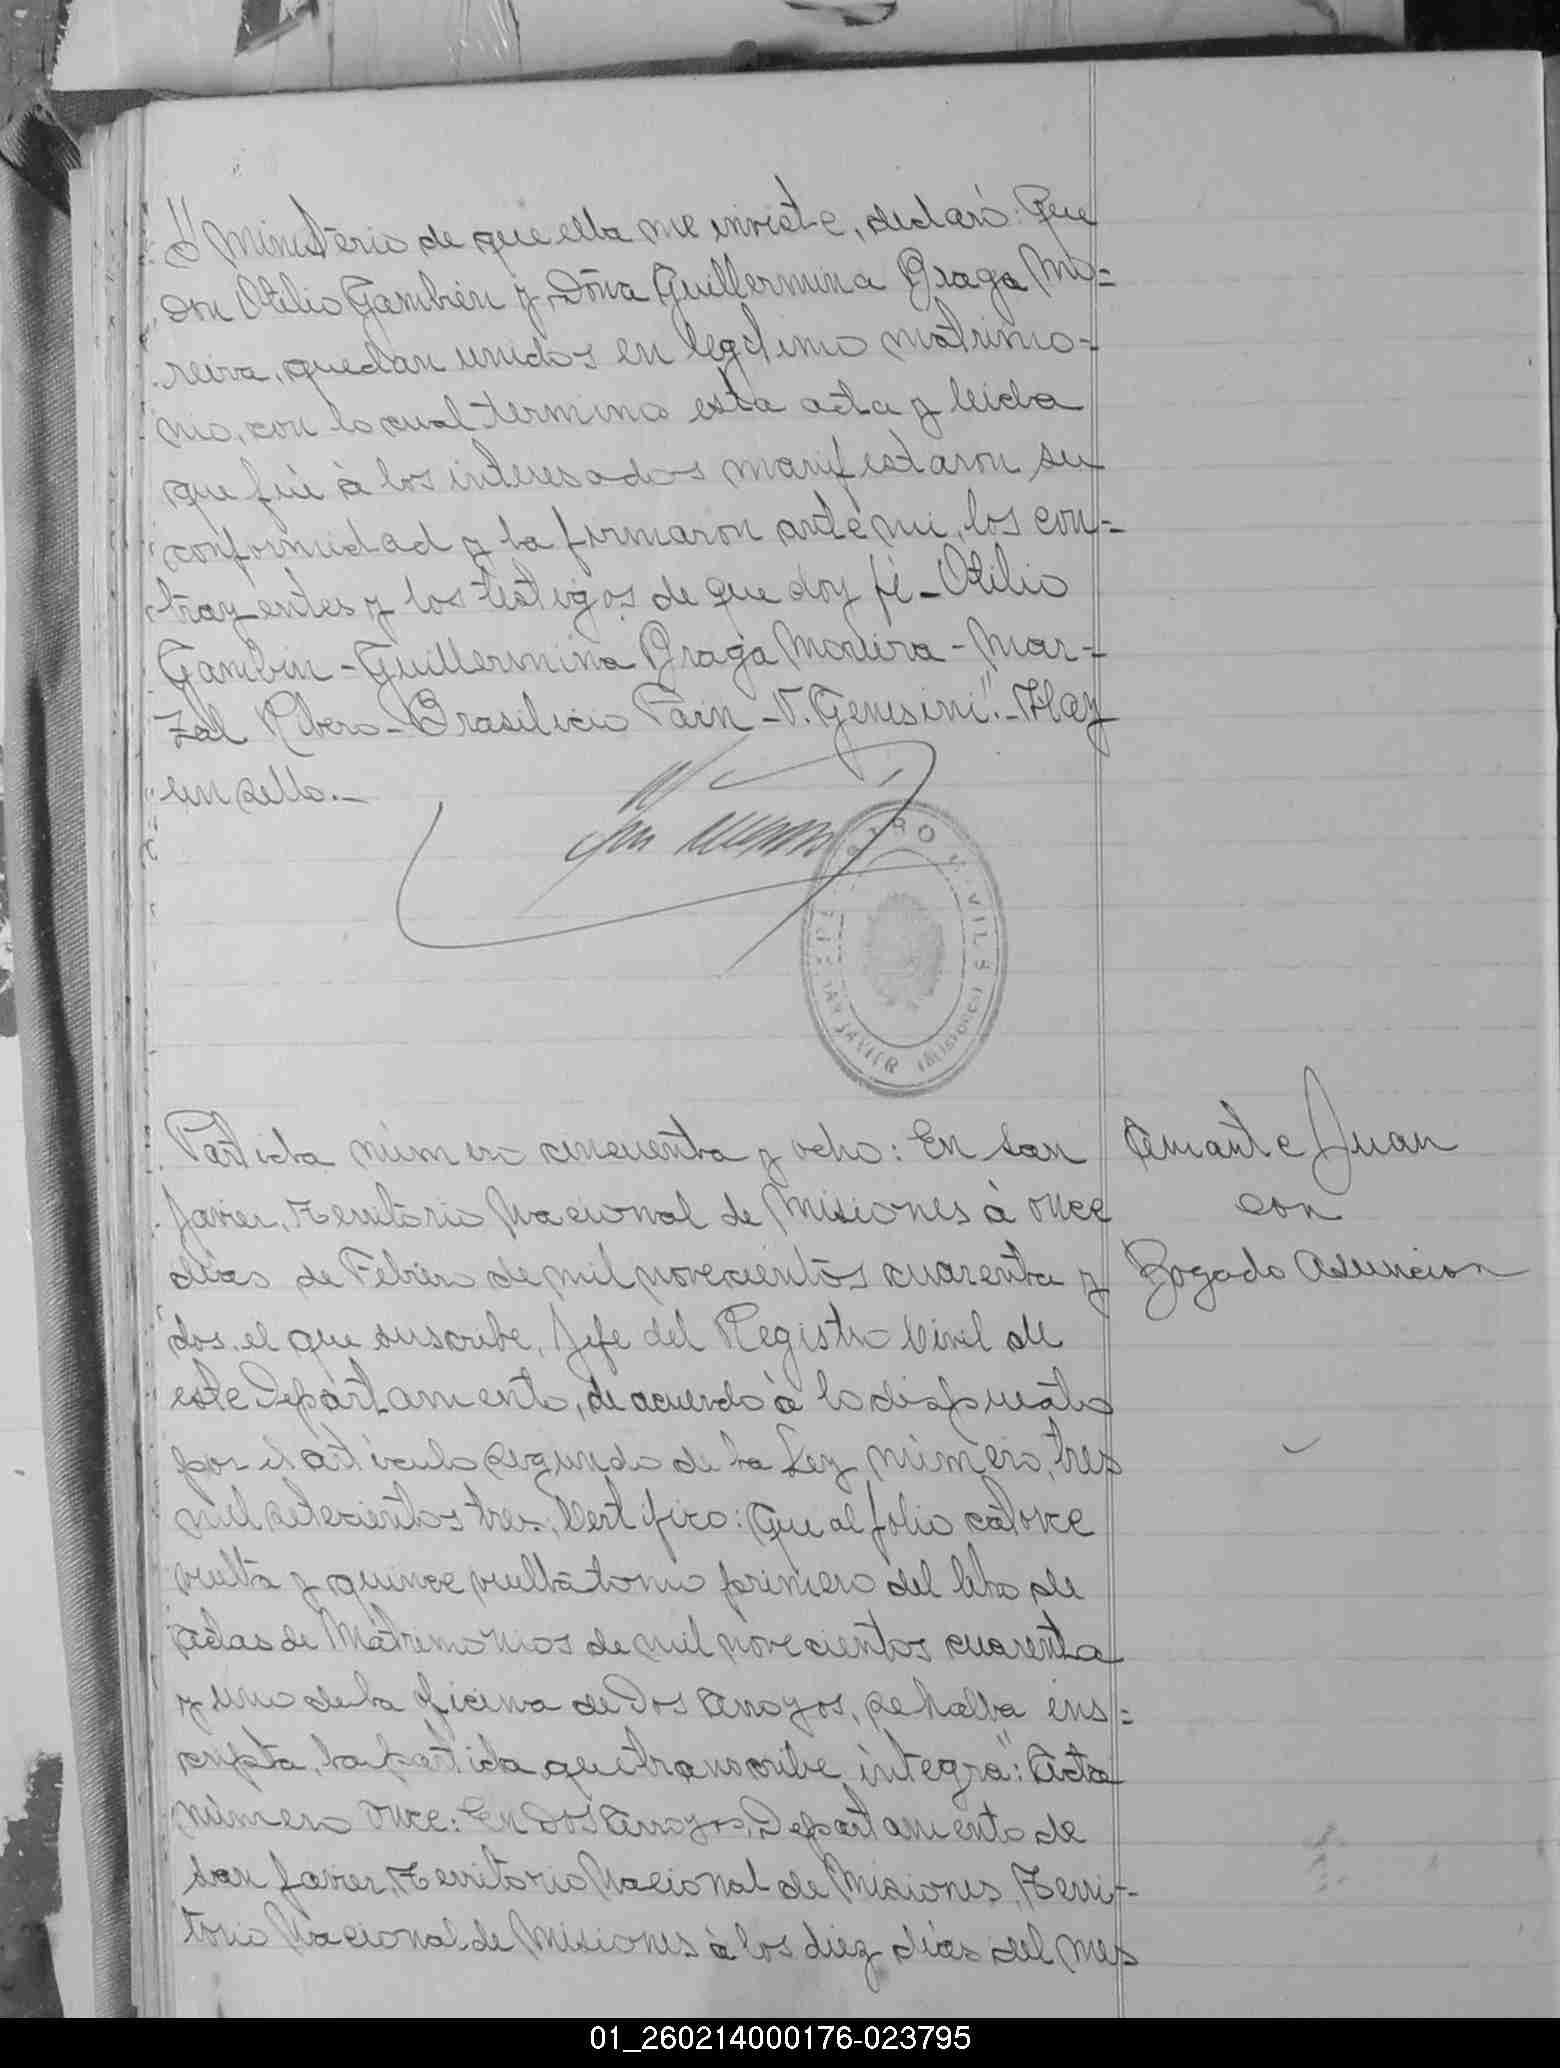 Ministerio de que ella me inviste, declaró: Que
Don Otilio Gambin y Doña Guillermina Braga Mo=
reira, quedan unidos en legitimo matrimo-
nio, con lo cual termino esta acta y leida
que fué à los interesados manifestaron su
conformidad y la firmaron ante mi, los con=
trayentes y los testigos de que doy fé - Otilio
Gambin - Guillermina Braga Moreira - Mar-
zal Rivero - Brasilicio Fain - V. Genesini". - Hay
un sello. -
SAN JAVIER (MISIONES)
Partida número cincuenta y ocho: En San
Javier, Territorio Nacional de Misiones à once
dias de Febrero de mil novecientos cuarenta y
dos, el que suscribe, Jefe del Registro Civil de
este Departamento, de acuerdo à lo dispuesto
por el articulo segundo de la Ley número, tres
mil setecientos tres, Certifico: Que al folio catorce
vuelta y quince vuelta tomo primero del libro de
actas de Matrimonios de mil novecientos cuarenta
y uno de la oficina de Dos Arroyos, se halla ins=
cripta, la partida que transcribe integra: "Acta
número once: En Dos Arroyos, Departamento de
San Javier, Territorio Nacional de Misiones, Terri-
torio Nacional de Misiones à los diez dias del mes
Amante Juan
con
Bogado Asuncion
01_260214000176-023795